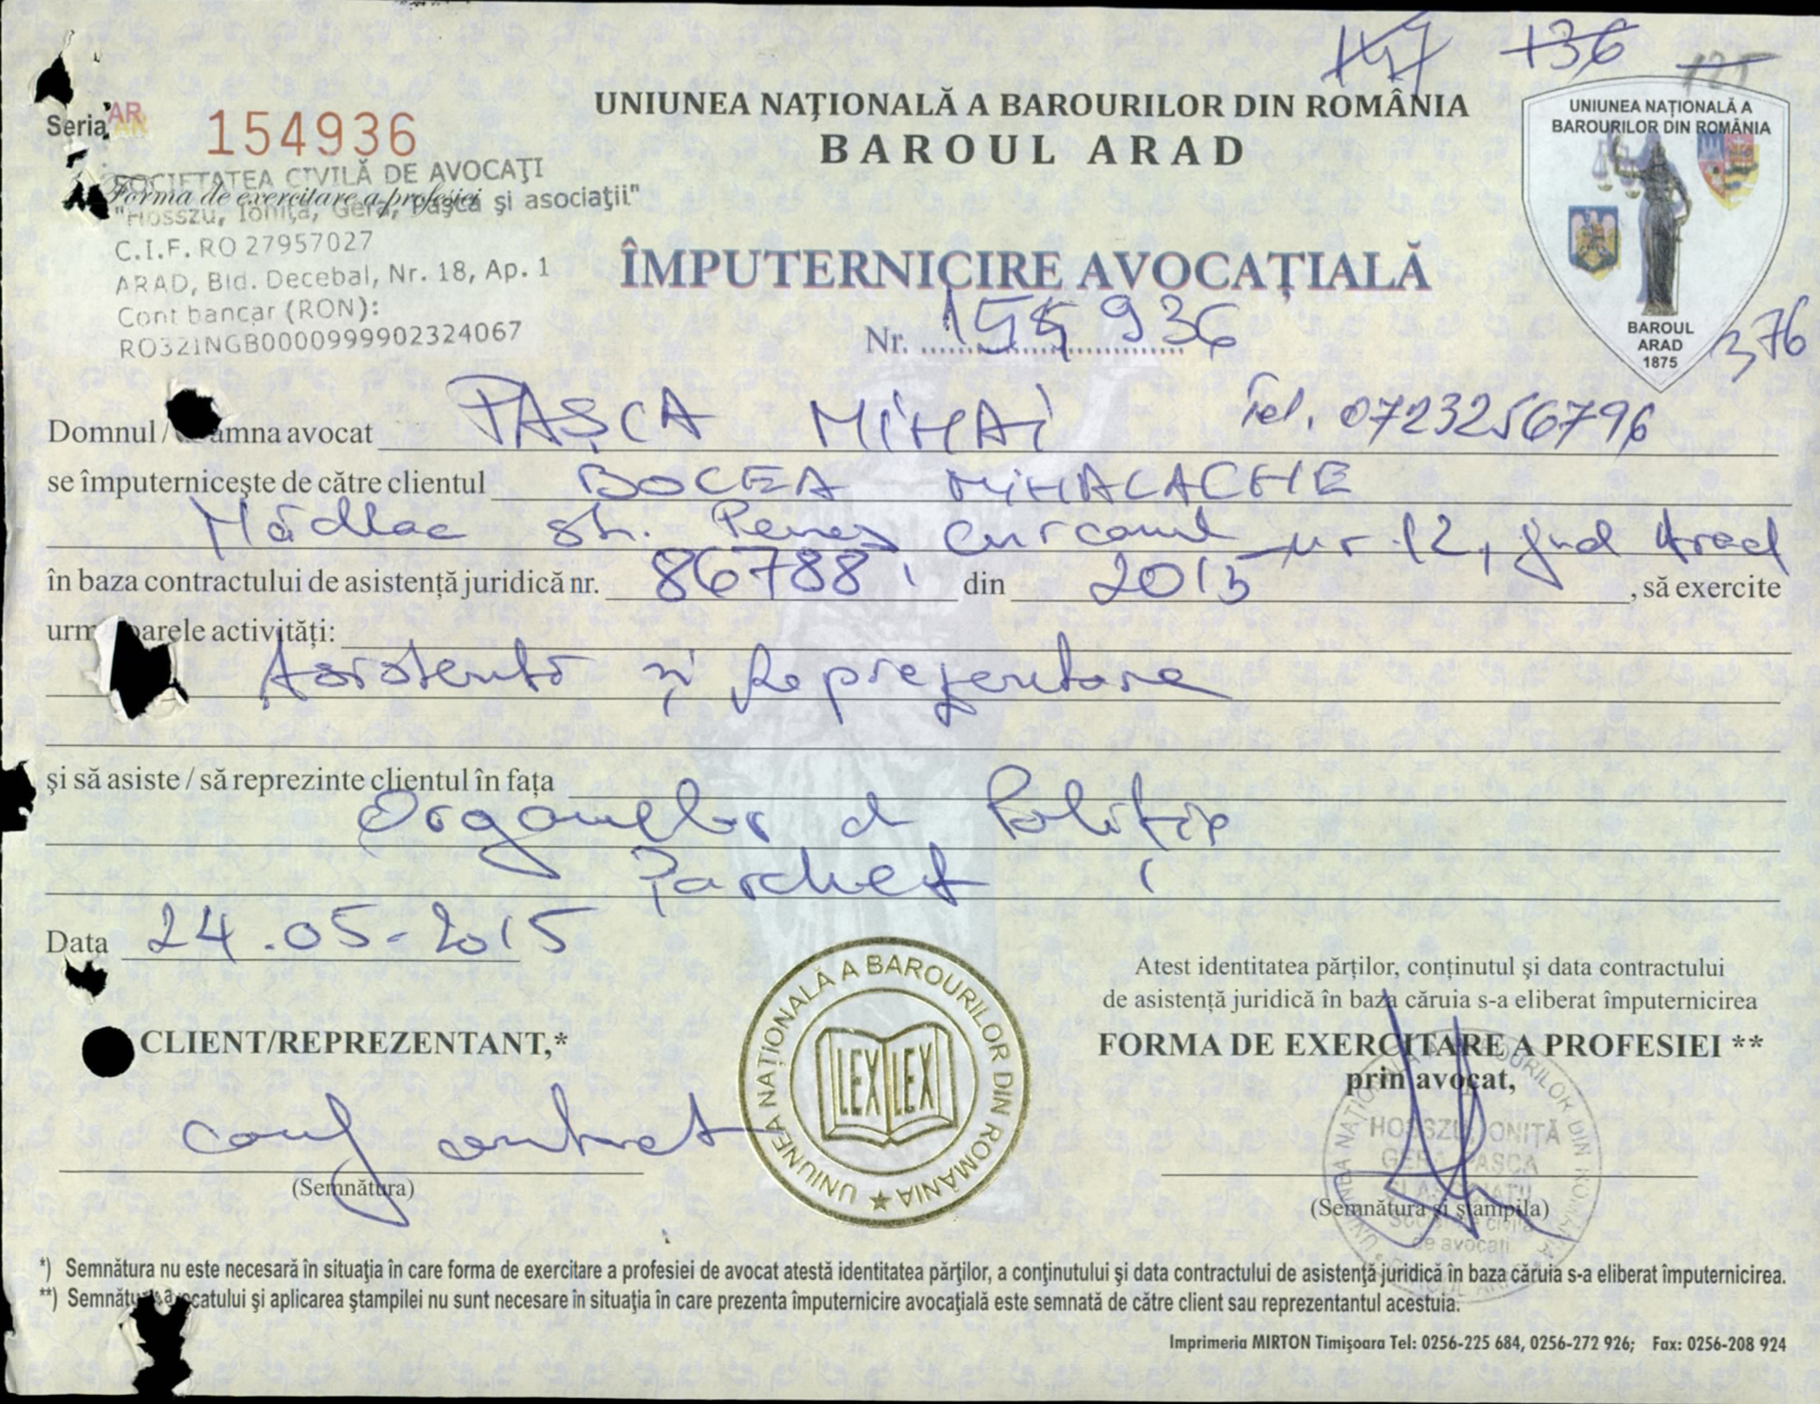 147 136 125
UNIUNEA NAŢIONALĂ A BAROURILOR DIN ROMÂNIA
BAROUL ARAD
Seria AR 154936
SOCIETATEA CIVILĂ DE AVOCAŢI
Forma de exercitare a profesiei
"Hosszu, Ioniţa, Gera, Paşca şi asociaţii"
C.I.F. RO 27957027
ARAD, Bld. Decebal, Nr. 18, Ap. 1
Cont bancar (RON):
RO32INGB0000999902324067
UNIUNEA NAŢIONALĂ A
BAROURILOR DIN ROMÂNIA
BAROUL
ARAD
1875
ÎMPUTERNICIRE AVOCAŢIALĂ
Nr. 154936
376
Domnul / Doamna avocat PAŞCA MIHAI Tel. 0723256796
se împuterniceşte de către clientul BOCEA MIHALACHE
Nădlac str. Peneş Curcanul nr 12, jud Arad
în baza contractului de asistenţă juridică nr. 86788 din 2015, să exercite
următoarele activităţi:
Asistentă şi Reprezentare
şi să asiste / să reprezinte clientul în faţa
Organelor d Poliţie
Parchet
Data 24.05.2015
Atest identitatea părţilor, conţinutul şi data contractului
de asistenţă juridică în baza căruia s-a eliberat împuternicirea
CLIENT/REPREZENTANT,*
FORMA DE EXERCITARE A PROFESIEI **
prin avocat,
conf contract
(Semnătura)
UNIUNEA NAŢIONALĂ A BAROURILOR DIN ROMÂNIA
LEX LEX
HOSSZU, IONIŢĂ
GERA, PAŞCA
ŞI ASOCIAŢII
Societate civilă
de avocaţi
(Semnătura şi ştampila)
*) Semnătura nu este necesară în situaţia în care forma de exercitare a profesiei de avocat atestă identitatea părţilor, a conţinutului şi data contractului de asistenţă juridică în baza căruia s-a eliberat împuternicirea.
**) Semnătura avocatului şi aplicarea ştampilei nu sunt necesare în situaţia în care prezenta împuternicire avocaţială este semnată de către client sau reprezentantul acestuia.
Imprimeria MIRTON Timişoara Tel: 0256-225 684, 0256-272 926; Fax: 0256-208 924